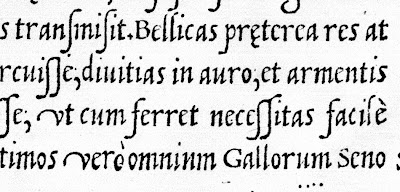 s tranſmiſit. Bellicas pręterea res at
rcuiſſe; diuitias in auro, et armentis
ſſe; vt cum ferret neceſſitas facilè
timos verò omnium Gallorum Seno s